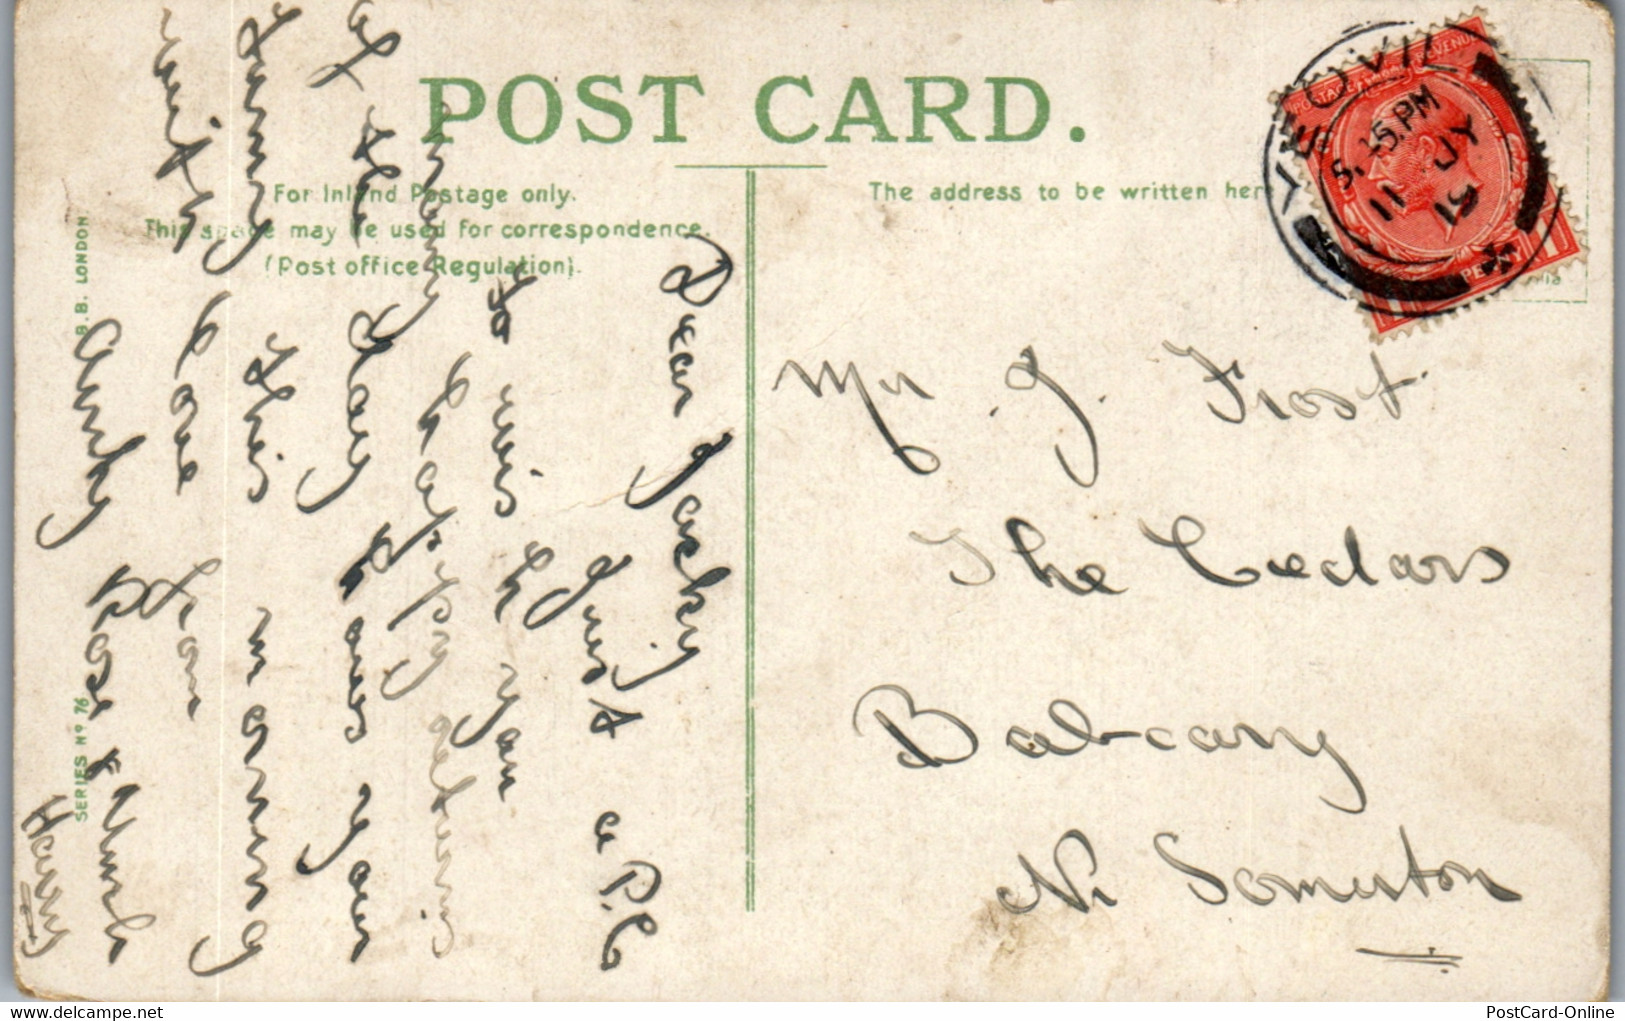 POST CARD.
For Inland Postage only.
This space may be used for correspondence.
(Post office Regulation).
The address to be written here
B.B. LONDON.
SERIES Nº 76
YEOVIL
5.15.PM
11 JY
19
POSTAGE REVENUE
PENNY
Dear Jacky
Just a P.C
to wis h you
many happy returns
of the day hows your
Tommy this morning
with love from
Aunty Rose & Uncle
Harry
Mr J. Frost
The Cedars
Babcary
Nr Somerton
www.delcampe.net
PostCard-Online